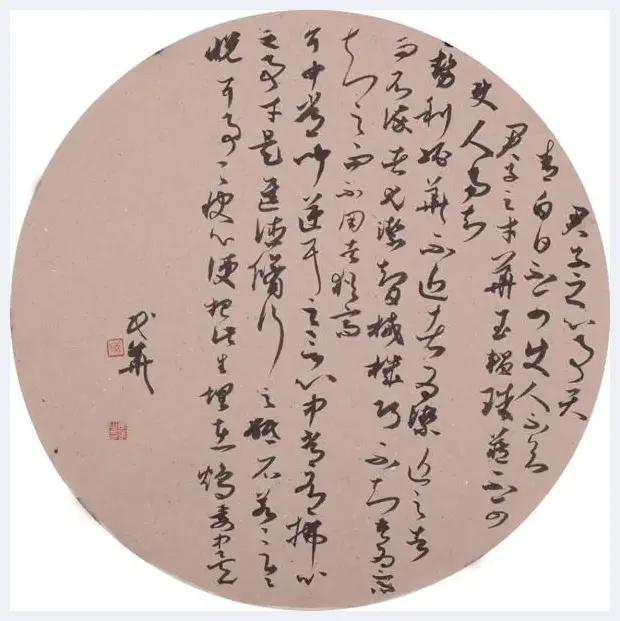 君子之心事天
青白日不可使人不知
君子之才華玉韞珠藏不可
使人易知
勢利紛華不近者為潔近之
而不染者尤潔智械機巧不知者為高
知之而不用者高
耳中常聞逆耳之言心中常有拂心
之事才是進德修行之砥石若言言
悅耳事事快心便把此生埋在鴆毒中矣
華